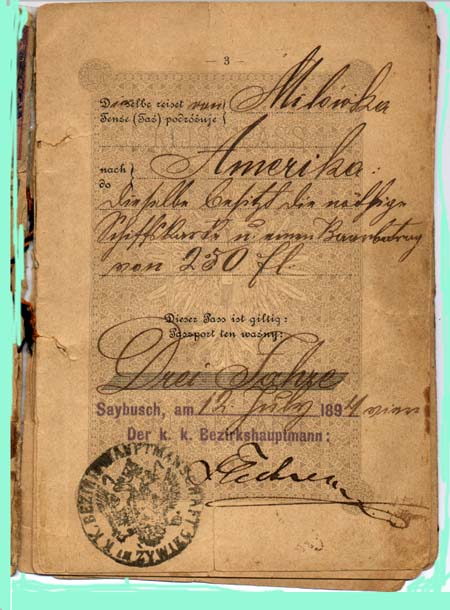 — 3 —
Dieselbe reiset von } Milówka
Tenże (Taż) podróżuje {
nach } Amerika.
do
Dieselbe besitzt die nöthige
Schiffskarte u. einen Baarbetrag
von 250 fl.
Dieser Pass ist giltig:
Paszport ten ważny:
Drei Jahre
Saybusch, am 12. July 1894 vier
Der k. k. Bezirkshauptmann:
K. K. BEZIRKSHAUPTMANNSCHAFT